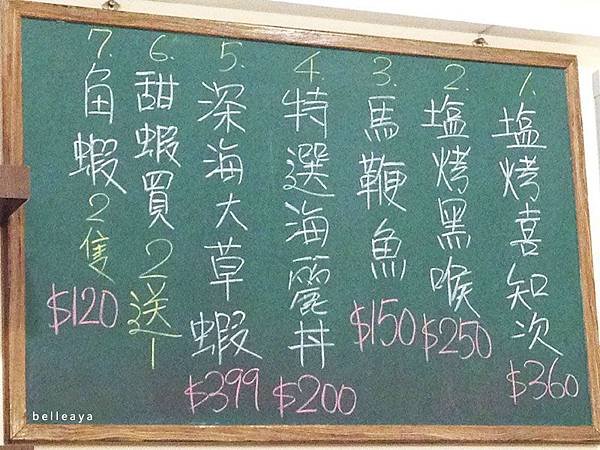 1. 塩烤喜知次 $360
2. 塩烤黑喉 $250
3. 馬鞭魚 $150
4. 特選海麗丼 $200
5. 深海大草蝦 $399
6. 甜蝦買2送1
7. 角蝦2隻 $120
belleaya